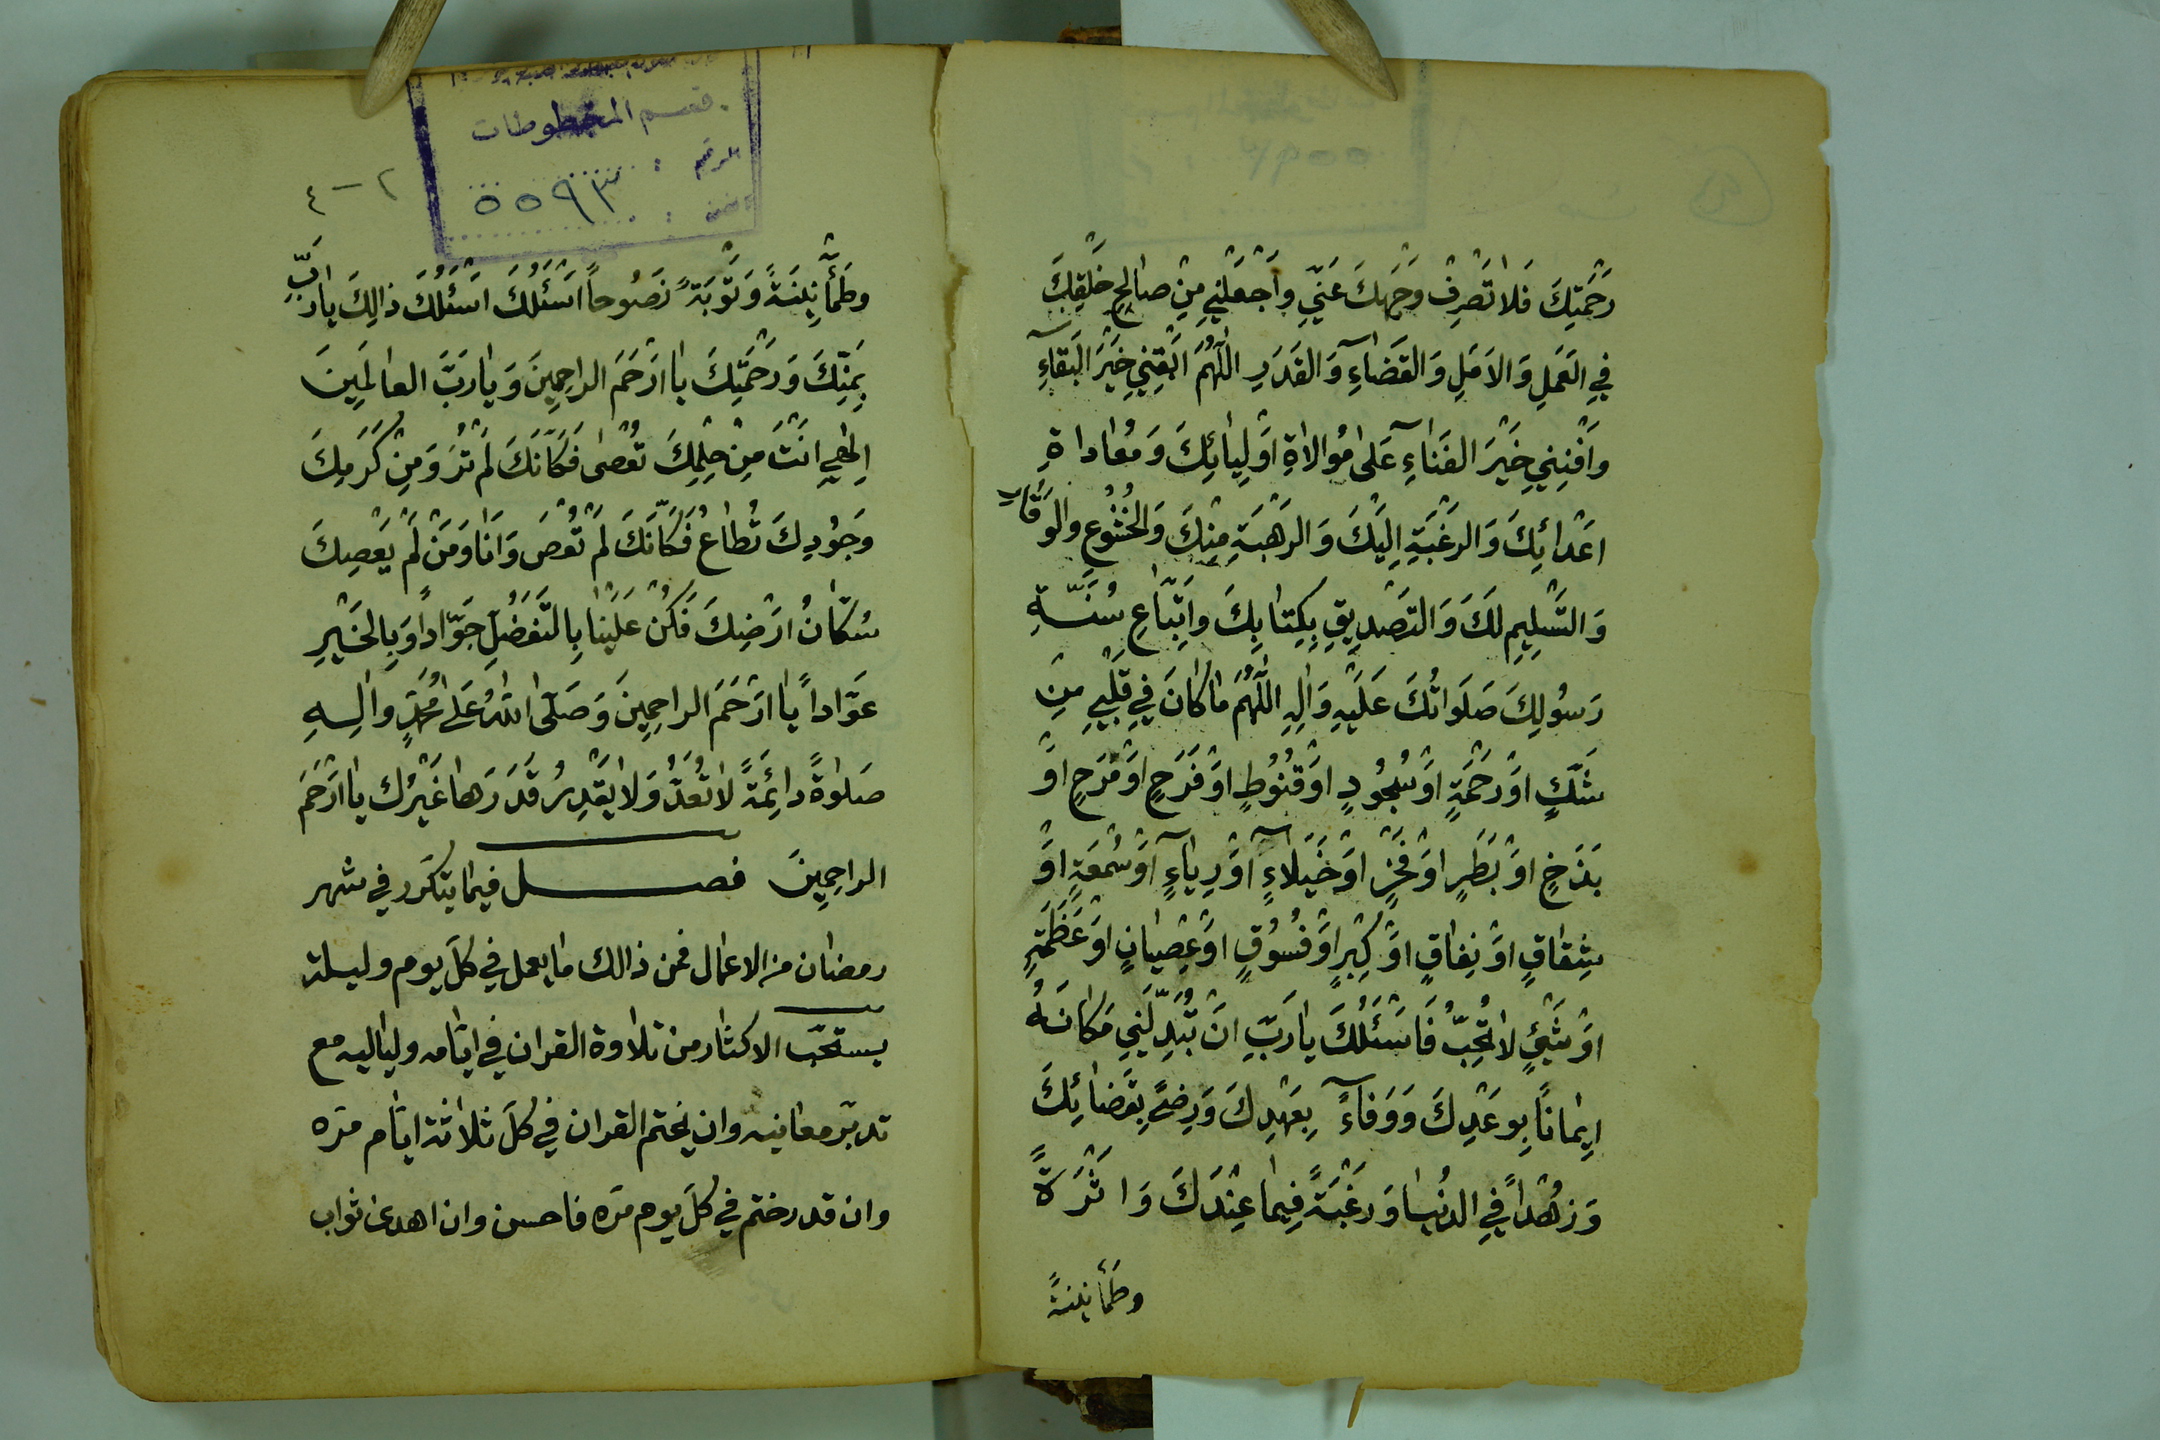 رَحْمَتِكَ فَلاٰ تَصْرِفْ وَجْهَكَ عَنّي وَاَجْعَلْني مِنْ صٰالِحِ خَلْقِكَ
فِي العَمَلِ وَالاَمَلِ وَالقَضٰآءِ وَالقَدَرِ اللّٰهُمَّ اَبْقِني خَيْرَ البَقٰآءِ
وَاَفْنِني خَيْرَ الفَنٰآءِ عَلىٰ مُوٰالاٰةِ اَوْلِيٰائِكَ وَمُعٰادٰاةِ
اَعْدٰائِكَ وَالرَغْبَةِ اِلَيْكَ وَالرَهْبَةِ مِنْكَ وَالخُشُوعِ وَالوَقٰارِ
وَالتَسْلِيمِ لَكَ وَالتَصْدِيقِ بِكِتٰابِكَ وَاِتِّبٰاعِ سُنَّةِ
رَسُولِكَ صَلَوٰاتُكَ عَلَيْهِ وَاٰلِهِ اللّٰهُمَّ مٰا كٰانَ فِي قَلْبِي مِنْ
شَكٍّ اَوْ رَحْمَةٍ اَوْ سُجُودٍ اَوْ قُنُوطٍ اَوْ فَرَحٍ اَوْ مَرَحٍ اَوْ
بَذَخٍ اَوْ بَطَرٍ اَوْ فَخْرٍ اَوْ خُيَلاٰءٍ اَوْ رِيٰآءٍ اَوْ سُمْعَةٍ اَوْ
شِقٰاقٍ اَوْ نِفٰاقٍ اَوْ كِبْرٍ اَوْ فُسُوقٍ اَوْ عِصْيٰانٍ اَوْ عَظَمَةٍ
اَوْ شَيْئٍ لاٰ تُحِبُّ فَاَسْئَلُكَ يٰا رَبِّ اَنْ تُبَدِّلَني مَكٰانَهُ
اِيمٰاناً بِوَعْدِكَ وَوَفٰآءً بِعَهْدِكَ وَرِضىً بِقَضٰائِكَ
وَزُهْداً فِي الدُنْيٰا وَرَغْبَةً فِيمٰا عِنْدَكَ وَاَثْرَةً
وطمأنينةً
قسم المخطوطات
الرقم : ٥٥٩٣
٢ – ٤
وَطُمَأْنِينَةً وَتَوْبَةً نَصُوحاً اَسْئَلُكَ اَسْئَلُكَ ذٰلِكَ يٰا رَبِّ
بِمَنِّكَ وَرَحْمَتِكَ يٰا اَرْحَمَ الراحِمِينَ وَيٰا رَبَّ العٰالَمِينَ
اِلٰهِي اَنْتَ مِنْ حِلْمِكَ تُعْصىٰ فَكَاَنَّكَ لَمْ تُرَ وَمِنْ كَرَمِكَ
وَجُودِكَ تُطٰاعُ فَكَاَنَّكَ لَمْ تُعْصَ وَاَنَا وَمَنْ لَمْ يَعْصِكَ
سُكّٰانُ اَرْضِكَ فَكُنْ عَلَيْنٰا بِالتَفَضُّلِ جَوّاداً وَبِالخَيْرِ
عَوّاداً يٰا اَرْحَمَ الراحِمِينَ وَصَلّىٰ اللّٰهُ عَلىٰ مُحَمَّدٍ وَاٰلِهِ
صَلوٰةً دائِمَةً لاٰ تُعَدُّ وَلاٰ يَقْدِرُ قَدَرَهٰا غَيْرُكَ يٰا اَرْحَمَ
الراحِمِينَ فصل فيما يتكرر في شهر
رمضان من الاعمال فمن ذالك ما يعمل في كلّ يوم وليلة
يستحبّ الاكثار من تلاوة القران في ايّامه ولياليه مع
تدبّر معانيه وان يختم القران في كلّ ثلاثة ايّام مرّه
وان قدر ختم في كلّ يوم مرّه فاحسن وان اهدى ثواب